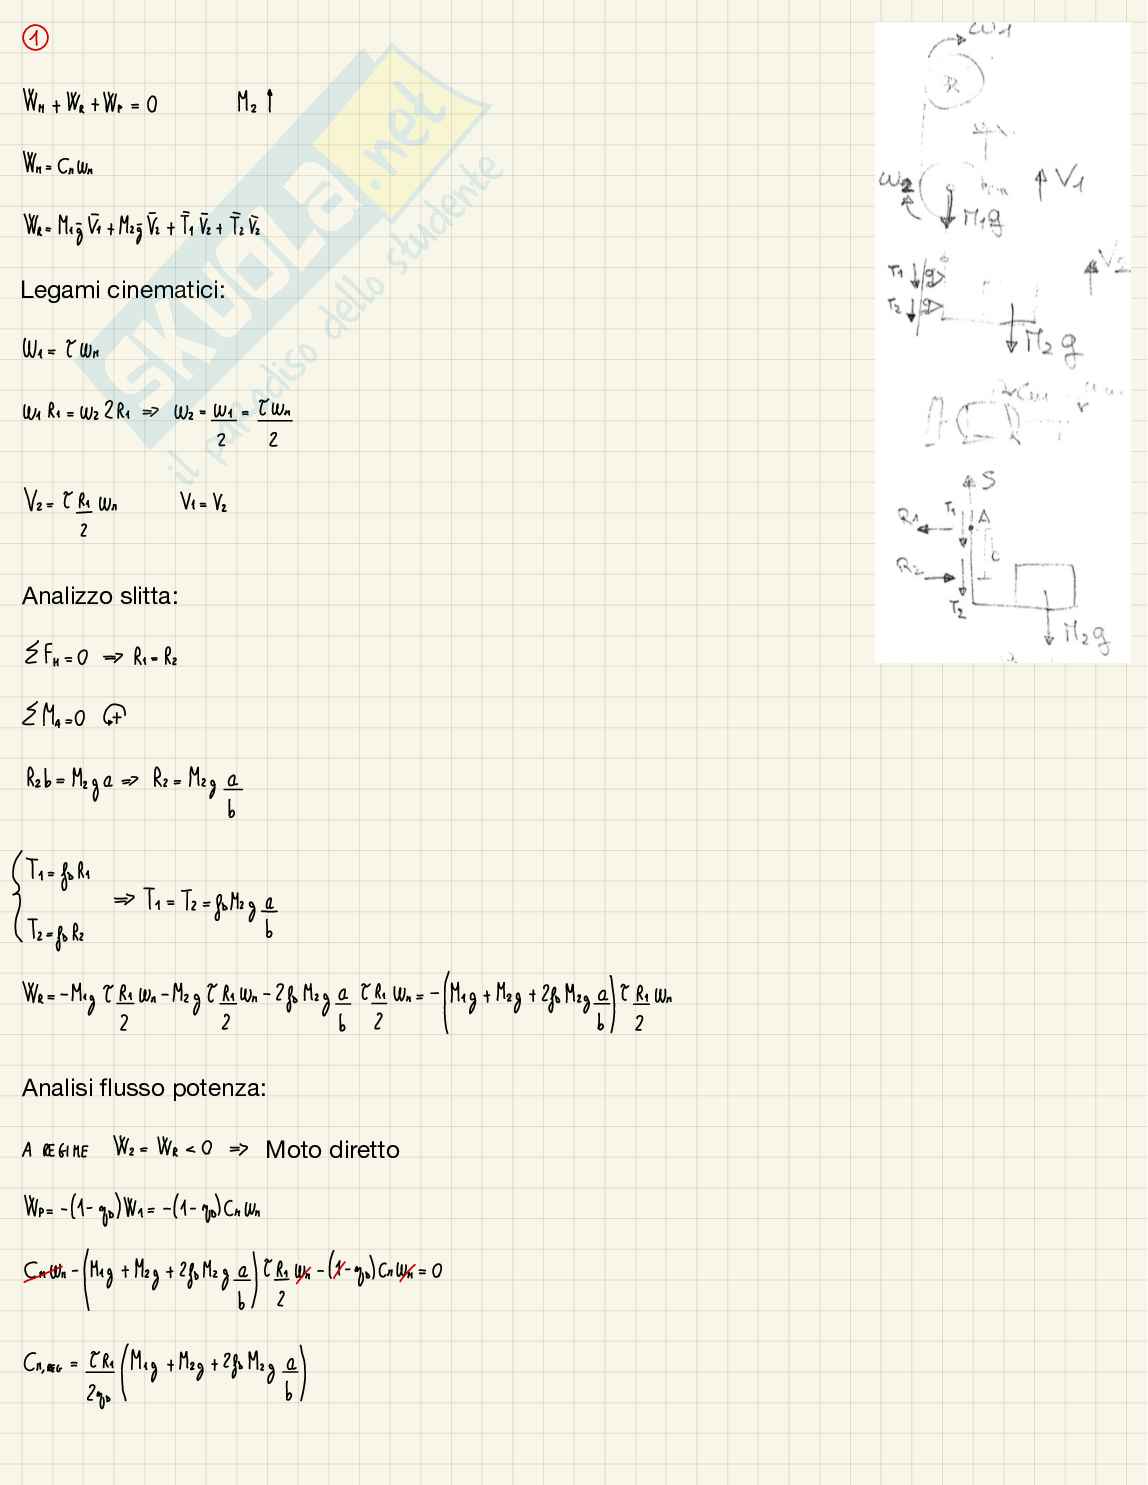 1
W_M + W_R + W_P = 0 M_2 ↑
W_M = C_m ω_m
W_R = M_1 ḡ V̄_1 + M_2 ḡ V̄_2 + T̄_1 V̄_2 + T̄_2 V̄_2
Legami cinematici:
ω_1 = τ ω_m
ω_1 R_1 = ω_2 2 R_1 ⇒ ω_2 = ω_1/2 = τω_m/2
V_2 = τ R_1/2 ω_m V_1 = V_2
Analizzo slitta:
ΣF_H = 0 ⇒ R_1 = R_2
ΣM_A = 0 +
R_2 b = M_2 g a ⇒ R_2 = M_2 g a/b
T_1 = f_D R_1
⇒ T_1 = T_2 = f_D M_2 g a/b
T_2 = f_D R_2
W_R = -M_1 g τ R_1/2 ω_m - M_2 g τ R_1/2 ω_m - 2 f_D M_2 g a/b τ R_1/2 ω_m = -(M_1 g + M_2 g + 2 f_D M_2 g a/b) τ R_1/2 ω_m
Analisi flusso potenza:
A REGIME W_2 = W_R < 0 ⇒ Moto diretto
W_P = -(1 - η_D) W_1 = -(1 - η_D) C_m ω_m
C_m ω_m - (M_1 g + M_2 g + 2 f_D M_2 g a/b) τ R_1/2 ω_m - (1 - η_D) C_m ω_m = 0
C_m,REG = τ R_1/2η_D (M_1 g + M_2 g + 2 f_D M_2 g a/b)
ω1
R
ω2
V1
M1g
V2
T1
T2
M2g
S
R1
T1
A
R2
T2
M2g
SKUOLA.net
il paradiso dello studente